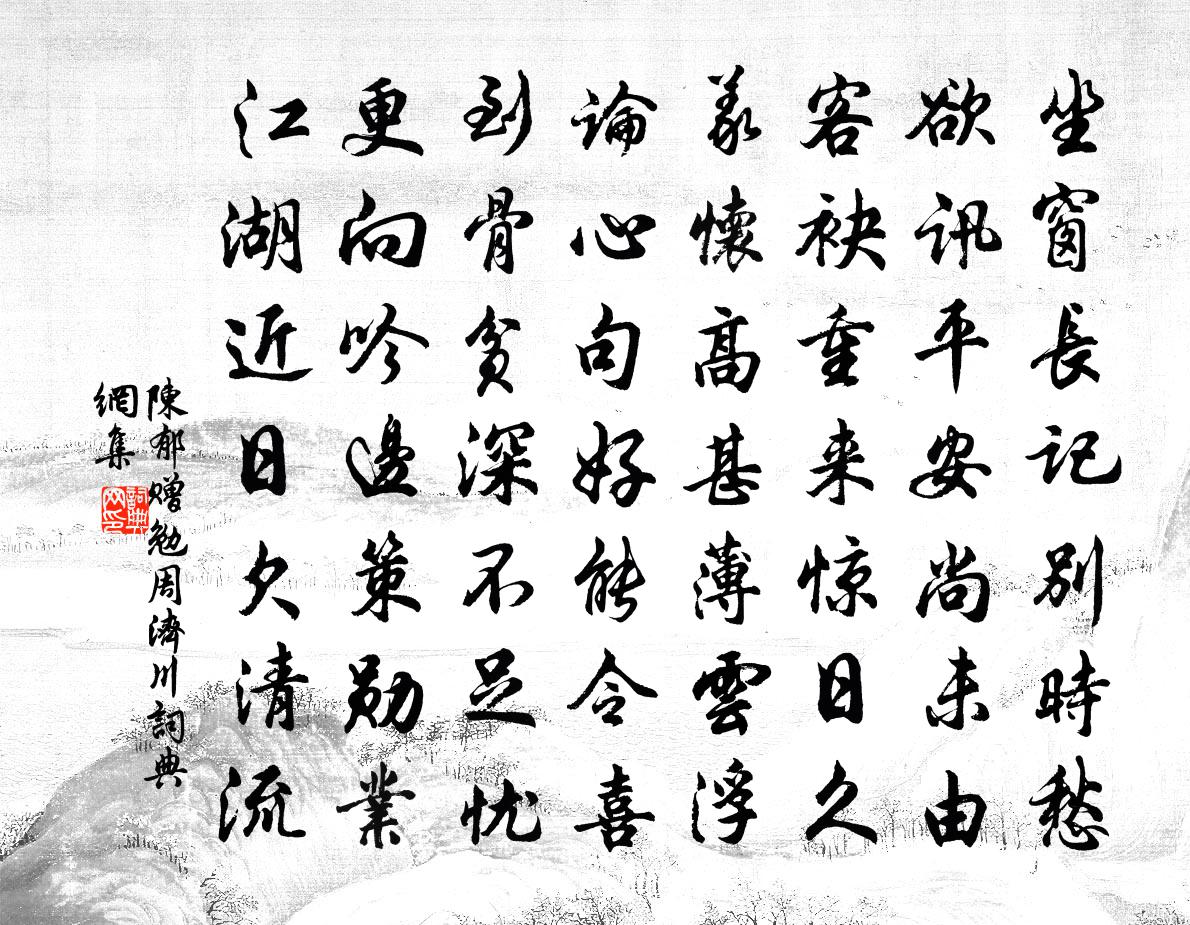 坐窗長記別時愁
欲訊平安尚未由
客袂重来惊日久
義懷高甚薄雲浮
論心句好能令喜
到骨貧深不足忧
更向吟邊策勋業
江湖近日欠清流
陳郁赠勉周濟川詞典
網集
詞典
网印